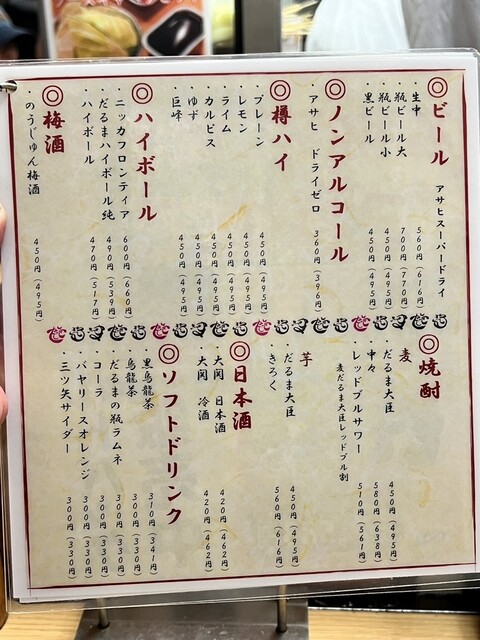 ◎ビール アサヒスーパードライ
・生中 560円(616円)
・瓶ビール大 700円(770円)
・瓶ビール小 450円(495円)
・黒ビール 450円(495円)
◎ノンアルコール
・アサヒ ドライゼロ 360円(396円)
◎樽ハイ
・プレーン 450円(495円)
・レモン 450円(495円)
・ライム 450円(495円)
・カルピス 450円(495円)
・ゆず 450円(495円)
・巨峰 450円(495円)
◎ハイボール
・ニッカフロンティア 600円(660円)
・だるまハイボール純 490円(539円)
・ハイボール 470円(517円)
◎梅酒
・のうじゅん梅酒 450円(495円)
◎焼酎
麦
・だるま大臣 450円(495円)
・中々 580円(638円)
・レッドブルサワー 510円(561円)
麦だるま大臣レッドブル割
芋
・だるま大臣 450円(495円)
・きろく 560円(616円)
◎日本酒
・大関 日本酒 420円(462円)
・大関 冷酒 420円(462円)
◎ソフトドリンク
・黒烏龍茶 310円(341円)
・烏龍茶 300円(330円)
・だるまの瓶ラムネ 300円(330円)
・コーラ 300円(330円)
・バヤリースオレンジ 300円(330円)
・三ツ矢サイダー 300円(330円)